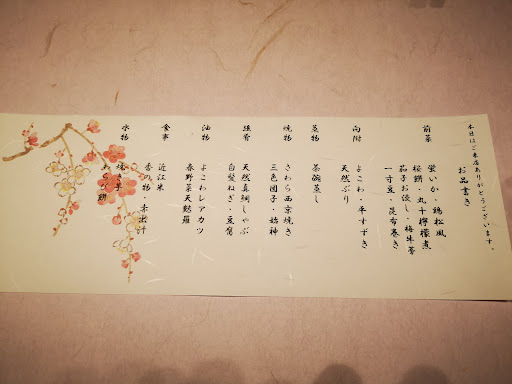 本日はご来店ありがとうございます。
お品書き
前菜
蛍いか・鶏松風
桜餅・丸十檸檬煮
茄子お浸し・梅
一寸豆・昆布巻き
向附
よこわ・平すずき
天然ぶり
蒸物
茶碗蒸し
焼物
さわら西京焼き
三色団子・
強肴
天然真鯛しゃぶ
白髪ねぎ・豆腐
油物
よこわレアカツ
春野菜天麩羅
食事
近江米
香の物・赤出汁
水物
わらび餅